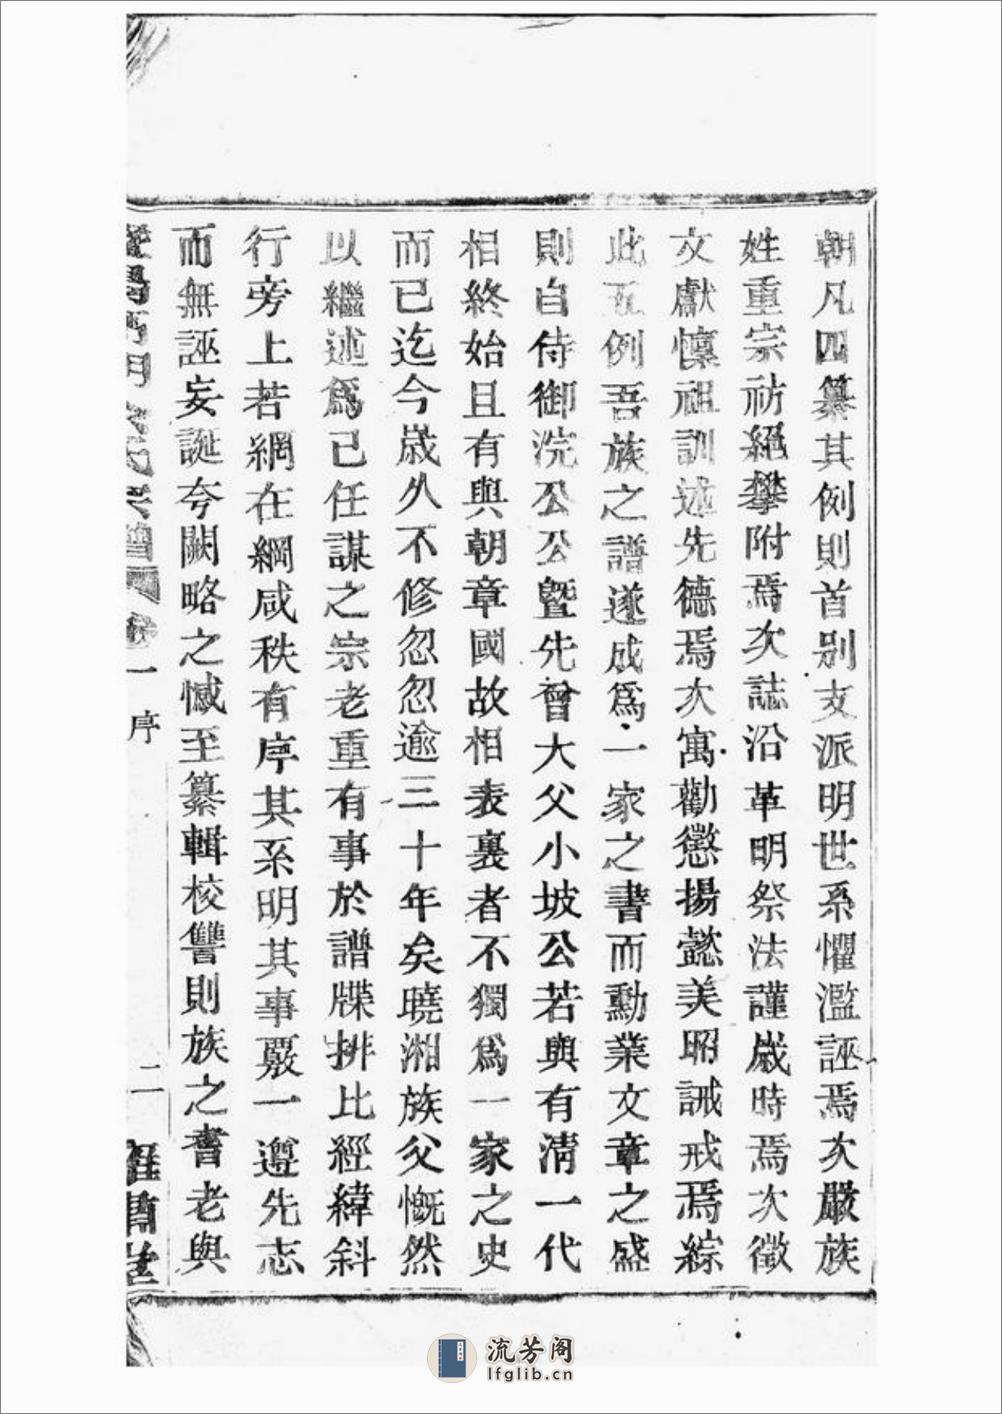 朝凡四纂其例則首别支派明世系懼濫誣焉次嚴族
姓重宗祊絕攀附焉次誌沿革明祭法謹歲時焉次徵
文獻懍祖訓述先德焉次寓勸懲揚懿美昭誡戒焉綜
此五例吾族之譜遂成爲一家之書而勳業文章之盛
則自侍御浣公公曁先曾大父小坡公若與有清一代
相終始且有與朝章國故相表裏者不獨爲一家之史
而已迄今歲久不修忽忽逾三十年矣曉湘族父慨然
以繼述爲己任謀之宗老重有事於譜牒排比經緯斜
行旁上若網在綱咸秩有序其系明其事覈一遵先志
而無誣妄誕夸闕略之憾至纂輯校讐則族之耆老與
氏宗譜 卷一 序 二
流芳阁
lfglib.cn